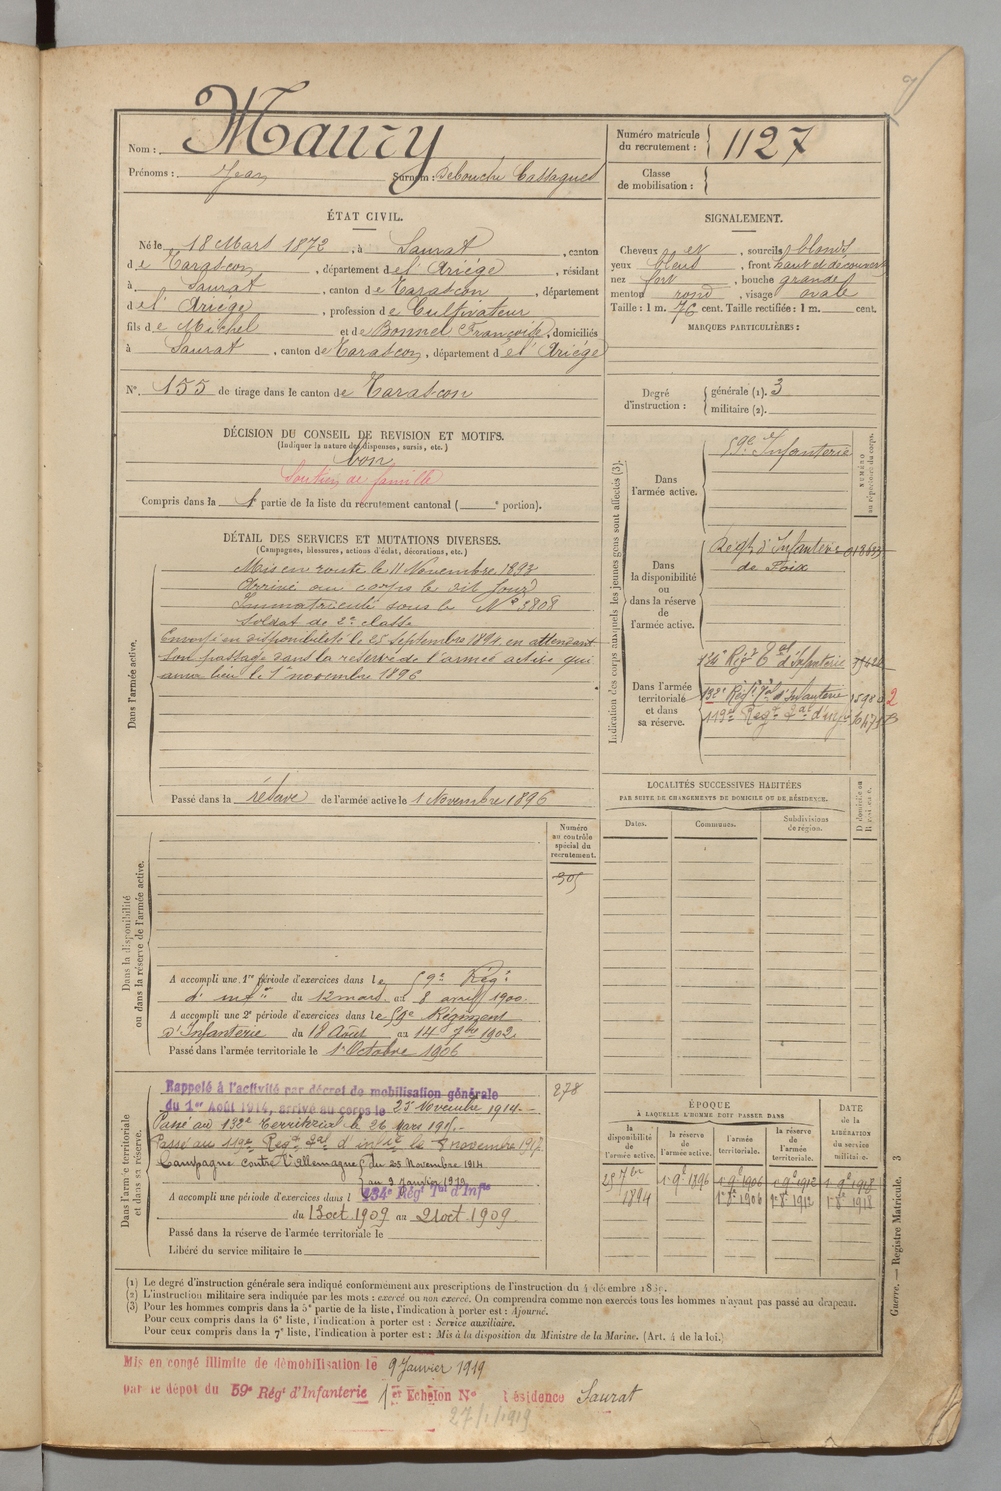 Nom : Maury
Prénoms : Jean Surnom : Debouchu Castagnes
Numéro matricule du recrutement : 1127
Classe de mobilisation :
ÉTAT CIVIL.
Né le 18 Mars 1872, à Saurat, canton
de Tarascon, département de l'Ariège, résidant
à Saurat, canton de Tarascon, département
de l'Ariège, profession de Cultivateur
fils de Michel et de Bonnel Françoise, domiciliés
à Saurat, canton de Tarascon, département de l'Ariège
N° 155 de tirage dans le canton de Tarascon
SIGNALEMENT.
Cheveux et, sourcils blonds
yeux bleus, front haut et découvert
nez fort, bouche grande
menton rond, visage ovale
Taille : 1 m. 76 cent. Taille rectifiée : 1 m. cent.
MARQUES PARTICULIÈRES :
Degré d'instruction : générale (1). 3
militaire (2).
DÉCISION DU CONSEIL DE REVISION ET MOTIFS.
(Indiquer la nature des dispenses, sursis, etc.)
bon
Soutien de famille
Compris dans la 1 partie de la liste du recrutement cantonal ( e portion).
DÉTAIL DES SERVICES ET MUTATIONS DIVERSES.
(Campagnes, blessures, actions d'éclat, décorations, etc.)
Dans l'armée active.
Mis en route le 11 Novembre 1893
Arrivé au corps le dit jour
Immatriculé sous le N° 3808
Soldat de 2e classe
Envoyé en disponibilité le 25 Septembre 1894 en attendant
son passage dans la réserve de l'armée active qui
aura lieu le 1er novembre 1896
Passé dans la réserve de l'armée active le 1 Novembre 1896
Indication des corps auxquels les jeunes gens sont affectés (3).
NUMÉRO au répertoire du corps.
Dans l'armée active.
59e Infanterie
Dans la disponibilité ou dans la réserve de l'armée active.
Régt d'Infanterie
de Foix
Dans l'armée territoriale et dans sa réserve.
134e Régt Tal d'Infanterie
132e Régt Tal d'Infanterie
119e Régt Tal d'infie
LOCALITÉS SUCCESSIVES HABITÉES
PAR SUITE DE CHANGEMENTS DE DOMICILE OU DE RÉSIDENCE.
Dates. Communes. Subdivisions de région.
Dans la disponibilité ou dans la réserve de l'armée active.
Numéro au contrôle spécial du recrutement.
305
A accompli une 1re période d'exercices dans le 59e Régt
d'infie du 12 mars au 8 avril 1900.
A accompli une 2e période d'exercices dans le 59e Régiment
d'Infanterie du 18 Août au 14 7bre 1902.
Passé dans l'armée territoriale le 1er Octobre 1906
Dans l'armée territoriale et dans sa réserve.
278
Rappelé à l'activité par décret de mobilisation générale
du 1er Août 1914, arrivé au corps le 25 Novembre 1914.
Passé au 132e Territorial le 26 mars 1915.
Passé au 119e Regt Tal d'infie le 8 novembre 1917
Campagne contre l'Allemagne du 25 Novembre 1914
au 9 Janvier 1919
A accompli une période d'exercices dans l 134e Régt Tal d'Infie
du 13 oct. 1909 au 21 oct. 1909
Passé dans la réserve de l'armée territoriale le
Libéré du service militaire le
ÉPOQUE
À LAQUELLE L'HOMME DOIT PASSER DANS
la disponibilité de l'armée active. la réserve de l'armée active. l'armée territoriale. la réserve de l'armée territoriale.
DATE de la LIBÉRATION du service militaire.
25 7bre 1894 1er 9e 1896 1er 9e 1906 1er 9e 1912 1er 9e 1918
1er 8e 1906 1er 8e 1912 1er 8e 1918
Guerre. — Registre Matricule. 3
(1) Le degré d'instruction générale sera indiqué conformément aux prescriptions de l'instruction du 4 décembre
(2) L'instruction militaire sera indiquée par les mots : exercé ou non exercé. On comprendra comme non exercés tous les hommes n'ayant pas passé au drapeau.
(3) Pour les hommes compris dans la 5e partie de la liste, l'indication à porter est : Ajourné.
Pour ceux compris dans la 6e liste, l'indication à porter est : Service auxiliaire.
Pour ceux compris dans la 7e liste, l'indication à porter est : Mis à la disposition du Ministre de la Marine. (Art. 4 de la loi.)
Mis en congé illimité de démobilisation le 9 Janvier 1919
par le dépôt du 59e Régt d'Infanterie 1er Echelon N° Résidence Saurat
27/1/1919